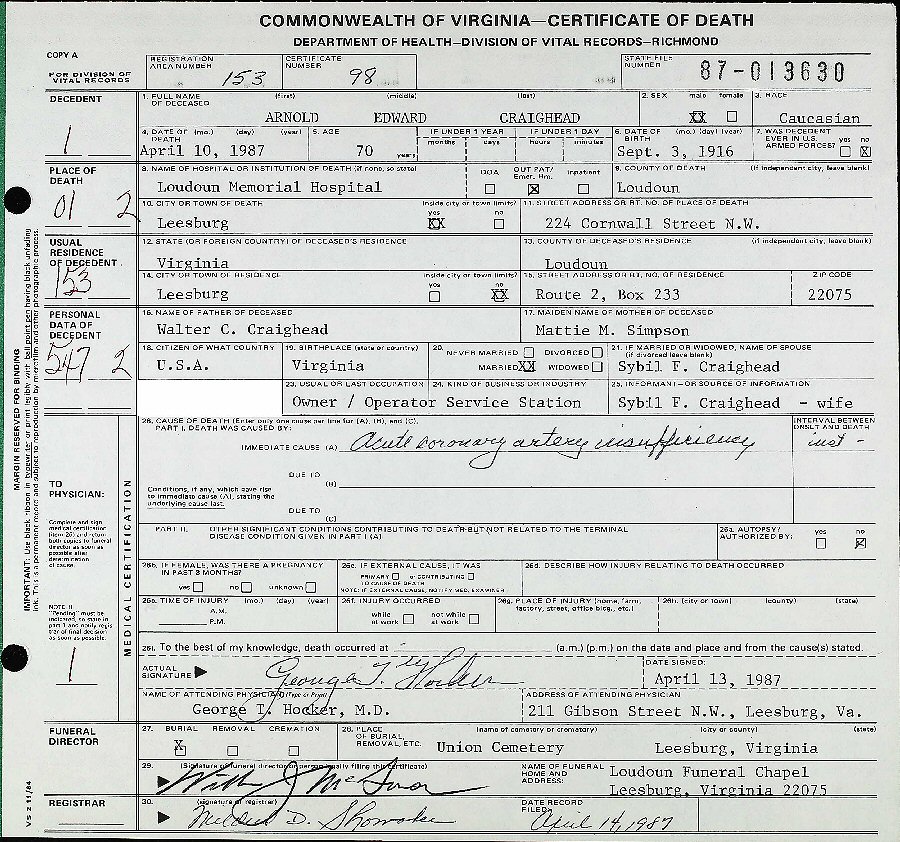 COMMONWEALTH OF VIRGINIA—CERTIFICATE OF DEATH
DEPARTMENT OF HEALTH—DIVISION OF VITAL RECORDS—RICHMOND
COPY A
FOR DIVISION OF VITAL RECORDS
REGISTRATION AREA NUMBER 153
CERTIFICATE NUMBER 98
STATE FILE NUMBER 87-013630
DECEDENT
1
1. FULL NAME OF DECEASED (first) (middle) (last)
ARNOLD EDWARD CRAIGHEAD
2. SEX male female
XX
3. RACE
Caucasian
4. DATE OF DEATH (mo.) (day) (year)
April 10, 1987
5. AGE
70 years
IF UNDER 1 YEAR months days
IF UNDER 1 DAY hours minutes
6. DATE OF BIRTH (mo.) (day) (year)
Sept. 3, 1916
7. WAS DECEDENT EVER IN U.S. ARMED FORCES? yes no
X
PLACE OF DEATH
01 2
8. NAME OF HOSPITAL OR INSTITUTION OF DEATH (if none, so state)
Loudoun Memorial Hospital
DOA OUT PAT/ Emer. Rm. Inpatient
X
9. COUNTY OF DEATH (if independent city, leave blank)
Loudoun
10. CITY OR TOWN OF DEATH inside city or town limits? yes no
Leesburg XX
11. STREET ADDRESS OR RT. NO. OF PLACE OF DEATH
224 Cornwall Street N.W.
USUAL RESIDENCE OF DECEDENT
153
12. STATE (OR FOREIGN COUNTRY) OF DECEASED'S RESIDENCE
Virginia
13. COUNTY OF DECEASED'S RESIDENCE (if independent city, leave blank)
Loudoun
14. CITY OR TOWN OF RESIDENCE inside city or town limits? yes no
Leesburg XX
15. STREET ADDRESS OR RT. NO. OF RESIDENCE
Route 2, Box 233
ZIP CODE
22075
PERSONAL DATA OF DECEDENT
547 2
16. NAME OF FATHER OF DECEASED
Walter C. Craighead
17. MAIDEN NAME OF MOTHER OF DECEASED
Mattie M. Simpson
18. CITIZEN OF WHAT COUNTRY
U.S.A.
19. BIRTHPLACE (state or country)
Virginia
20. NEVER MARRIED DIVORCED
MARRIED XX WIDOWED
21. IF MARRIED OR WIDOWED, NAME OF SPOUSE (if divorced leave blank)
Sybil F. Craighead
23. USUAL OR LAST OCCUPATION
24. KIND OF BUSINESS OR INDUSTRY
Owner / Operator Service Station
25. INFORMANT—OR SOURCE OF INFORMATION
Sybil F. Craighead - wife
MARGIN RESERVED FOR BINDING
IMPORTANT: Use black ribbon in typewriter, or print legibly with ball point pen having black unfading ink. This is a permanent record and subject to reproduction by microfilm and other photographic process.
TO PHYSICIAN:
Complete and sign medical certification (item 26) and return both copies to funeral director as soon as possible after determination of cause.
NOTE II. "Pending" must be indicated, so state in part I and notify registrar of final decision as soon as possible.
1
MEDICAL CERTIFICATION
26. CAUSE OF DEATH (Enter only one cause per line for (A), (B), and (C).
PART I. DEATH WAS CAUSED BY:
INTERVAL BETWEEN ONSET AND DEATH
IMMEDIATE CAUSE (A) Acute coronary artery insufficiency inst -
DUE TO (B)
Conditions, if any, which gave rise to immediate cause (A), stating the underlying cause last.
DUE TO (C)
PART II. OTHER SIGNIFICANT CONDITIONS CONTRIBUTING TO DEATH BUT NOT RELATED TO THE TERMINAL DISEASE CONDITION GIVEN IN PART I (A)
26a. AUTOPSY? AUTHORIZED BY: yes no
X
26b. IF FEMALE, WAS THERE A PREGNANCY IN PAST 3 MONTHS?
yes no unknown
26c. IF EXTERNAL CAUSE, IT WAS
PRIMARY or CONTRIBUTING TO CAUSE OF DEATH
NOTE: IF EXTERNAL CAUSE, NOTIFY MED. EXAMINER
26d. DESCRIBE HOW INJURY RELATING TO DEATH OCCURRED
26e. TIME OF INJURY (mo.) (day) (year)
A.M.
P.M.
26f. INJURY OCCURRED
while at work not while at work
26g. PLACE OF INJURY (home, farm, factory, street, office bldg., etc.)
26h. (city or town) (county) (state)
26i. To the best of my knowledge, death occurred at (a.m.) (p.m.) on the date and place and from the cause(s) stated.
ACTUAL SIGNATURE George T. Hocker
DATE SIGNED:
April 13, 1987
NAME OF ATTENDING PHYSICIAN (Type or Print)
George T. Hocker, M.D.
ADDRESS OF ATTENDING PHYSICIAN
211 Gibson Street N.W., Leesburg, Va.
FUNERAL DIRECTOR
27. BURIAL REMOVAL CREMATION
X
28. PLACE OF BURIAL, REMOVAL, ETC. (name of cemetery or crematory) (city or county) (state)
Union Cemetery Leesburg, Virginia
29. (Signature of funeral director or person legally filing this certificate)
NAME OF FUNERAL HOME AND ADDRESS:
Loudoun Funeral Chapel
Leesburg, Virginia 22075
REGISTRAR
30. (signature of registrar)
Mildred D. Showaker
DATE RECORD FILED:
April 14, 1987
VS 2 11/84